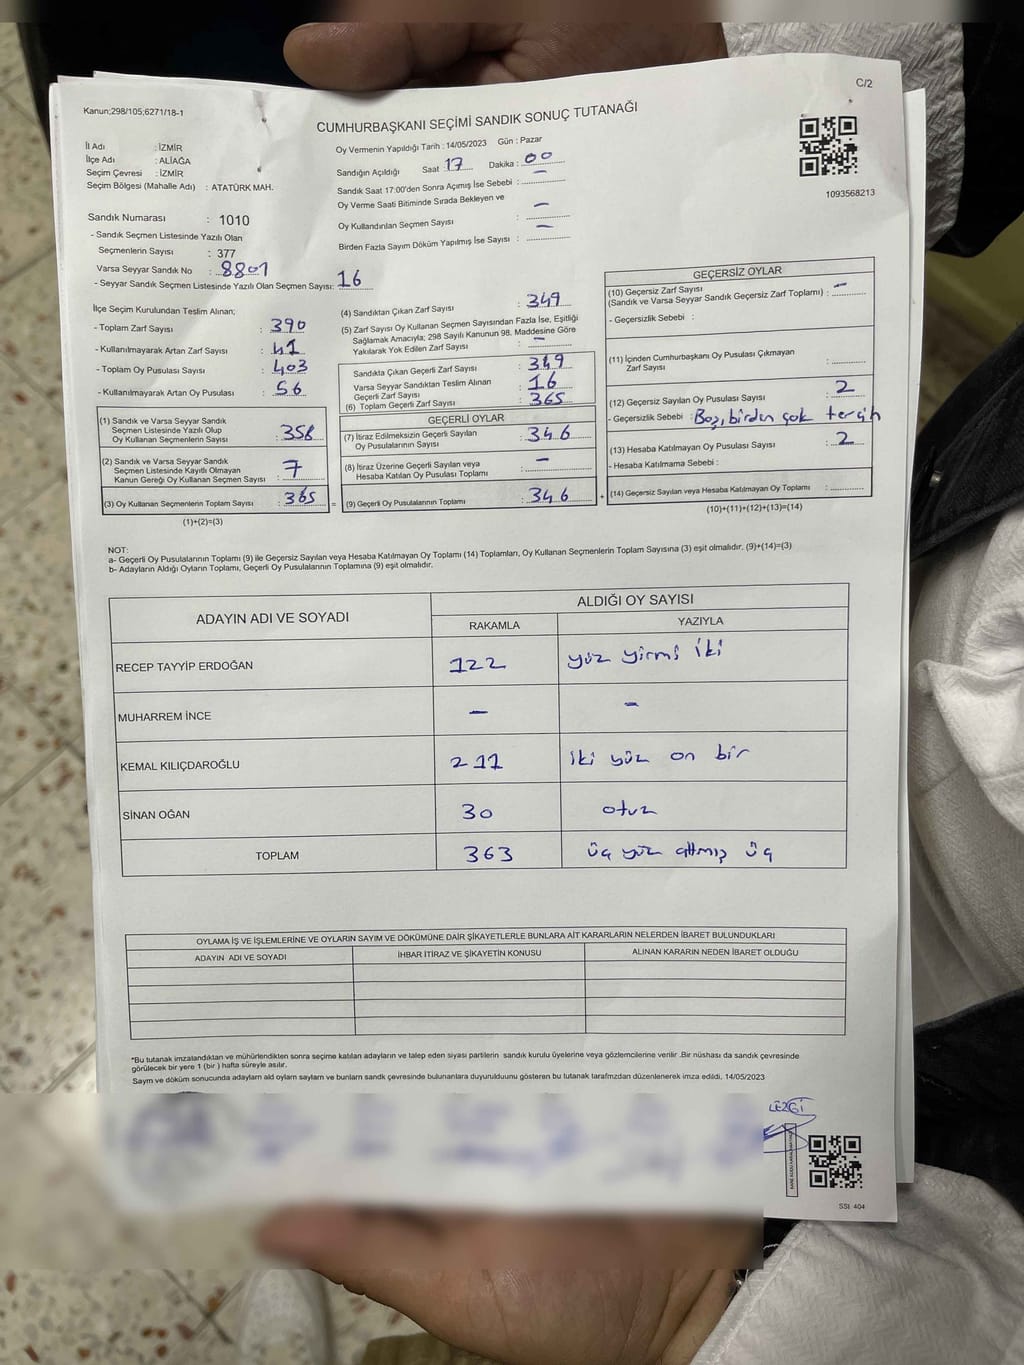 C/2
Kanun;298/105;6271/18-1
CUMHURBAŞKANI SEÇİMİ SANDIK SONUÇ TUTANAĞI
1093568213
İl Adı : İZMİR
İlçe Adı : ALİAĞA
Seçim Çevresi : İZMİR
Seçim Bölgesi (Mahalle Adı) : ATATÜRK MAH.
Oy Vermenin Yapıldığı Tarih : 14/05/2023 Gün : Pazar
Sandığın Açıldığı Saat 17 Dakika : 00
Sandık Saat 17:00'den Sonra Açımış İse Sebebi : –
Oy Verme Saati Bitiminde Sırada Bekleyen ve
Oy Kullandırılan Seçmen Sayısı : –
Birden Fazla Sayım Döküm Yapılmış İse Sayısı : –
Sandık Numarası : 1010
- Sandık Seçmen Listesinde Yazılı Olan
Seçmenlerin Sayısı : 377
Varsa Seyyar Sandık No : 8801
- Seyyar Sandık Seçmen Listesinde Yazılı Olan Seçmen Sayısı: 16
İlçe Seçim Kurulundan Teslim Alınan;
- Toplam Zarf Sayısı : 390
- Kullanılmayarak Artan Zarf Sayısı : 41
- Toplam Oy Pusulası Sayısı : 403
- Kullanılmayarak Artan Oy Pusulası : 56
(1) Sandık ve Varsa Seyyar Sandık
Seçmen Listesinde Yazılı Olup
Oy Kullanan Seçmenlerin Sayısı : 358
(2) Sandık ve Varsa Seyyar Sandık
Seçmen Listesinde Kayıtlı Olmayan
Kanun Gereği Oy Kullanan Seçmen Sayısı : 7
(3) Oy Kullanan Seçmenlerin Toplam Sayısı : 365 =
(1)+(2)=(3)
(4) Sandıktan Çıkan Zarf Sayısı : 349
(5) Zarf Sayısı Oy Kullanan Seçmen Sayısından Fazla İse, Eşitliği
Sağlamak Amacıyla; 298 Sayılı Kanunun 98. Maddesine Göre
Yakılarak Yok Edilen Zarf Sayısı : –
Sandıkta Çıkan Geçerli Zarf Sayısı : 349
Varsa Seyyar Sandıktan Teslim Alınan
Geçerli Zarf Sayısı : 16
(6) Toplam Geçerli Zarf Sayısı : 365
GEÇERLİ OYLAR
(7) İtiraz Edilmeksizin Geçerli Sayılan
Oy Pusulalarının Sayısı : 346
(8) İtiraz Üzerine Geçerli Sayılan veya
Hesaba Katılan Oy Pusulası Toplamı : –
(9) Geçerli Oy Pusulalarının Toplamı : 346 +
GEÇERSİZ OYLAR
(10) Geçersiz Zarf Sayısı
(Sandık ve Varsa Seyyar Sandık Geçersiz Zarf Toplamı) : –
- Geçersizlik Sebebi :
(11) İçinden Cumhurbaşkanı Oy Pusulası Çıkmayan
Zarf Sayısı :
(12) Geçersiz Sayılan Oy Pusulası Sayısı : 2
- Geçersizlik Sebebi : Boş, birden çok tercih
(13) Hesaba Katılmayan Oy Pusulası Sayısı : 2
- Hesaba Katılmama Sebebi :
(14) Geçersiz Sayılan veya Hesaba Katılmayan Oy Toplamı :
(10)+(11)+(12)+(13)=(14)
NOT:
a- Geçerli Oy Pusulalarının Toplamı (9) ile Geçersiz Sayılan veya Hesaba Katılmayan Oy Toplamı (14) Toplamları, Oy Kullanan Seçmenlerin Toplam Sayısına (3) eşit olmalıdır. (9)+(14)=(3)
b- Adayların Aldığı Oyların Toplamı, Geçerli Oy Pusulalarının Toplamına (9) eşit olmalıdır.
ADAYIN ADI VE SOYADI ALDIĞI OY SAYISI
RAKAMLA YAZIYLA
RECEP TAYYİP ERDOĞAN 122 yüz yirmi iki
MUHARREM İNCE – –
KEMAL KILIÇDAROĞLU 211 iki yüz on bir
SİNAN OĞAN 30 otuz
TOPLAM 363 üç yüz altmış üç
OYLAMA İŞ VE İŞLEMLERİNE VE OYLARIN SAYIM VE DÖKÜMÜNE DAİR ŞİKAYETLERLE BUNLARA AİT KARARLARIN NELERDEN İBARET BULUNDUKLARI
ADAYIN ADI VE SOYADI İHBAR İTİRAZ VE ŞİKAYETİN KONUSU ALINAN KARARIN NEDEN İBARET OLDUĞU
*Bu tutanak imzalandıktan ve mühürlendikten sonra seçime katılan adayların ve talep eden siyasi partilerin sandık kurulu üyelerine veya gözlemcilerine verilir .Bir nüshası da sandık çevresinde
görülecek bir yere 1 (bir ) hafta süreyle asılır.
Sayım ve döküm sonucunda adayların ald oyların sayların ve bunların sandk çevresinde bulunanlara duyurulduunu gösteren bu tutanak tarafmzdan düzenlenerek imza edildi, 14/05/2023
LEZGİ
SSI 404